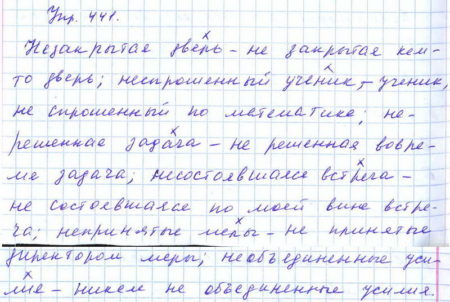 Упр. 441.
Незакрытая дверь – не закрытая кем-
то дверь; неспрошенный ученик, – ученик,
не спрошенный по математике; не-
решенная задача – не решенная вовре-
мя задача; несостоявшаяся встреча –
не состоявшаяся по моей вине встре-
ча; непринятые меры – не принятые
директором меры; необъединенные уси-
лия – никем не объединенные усилия.